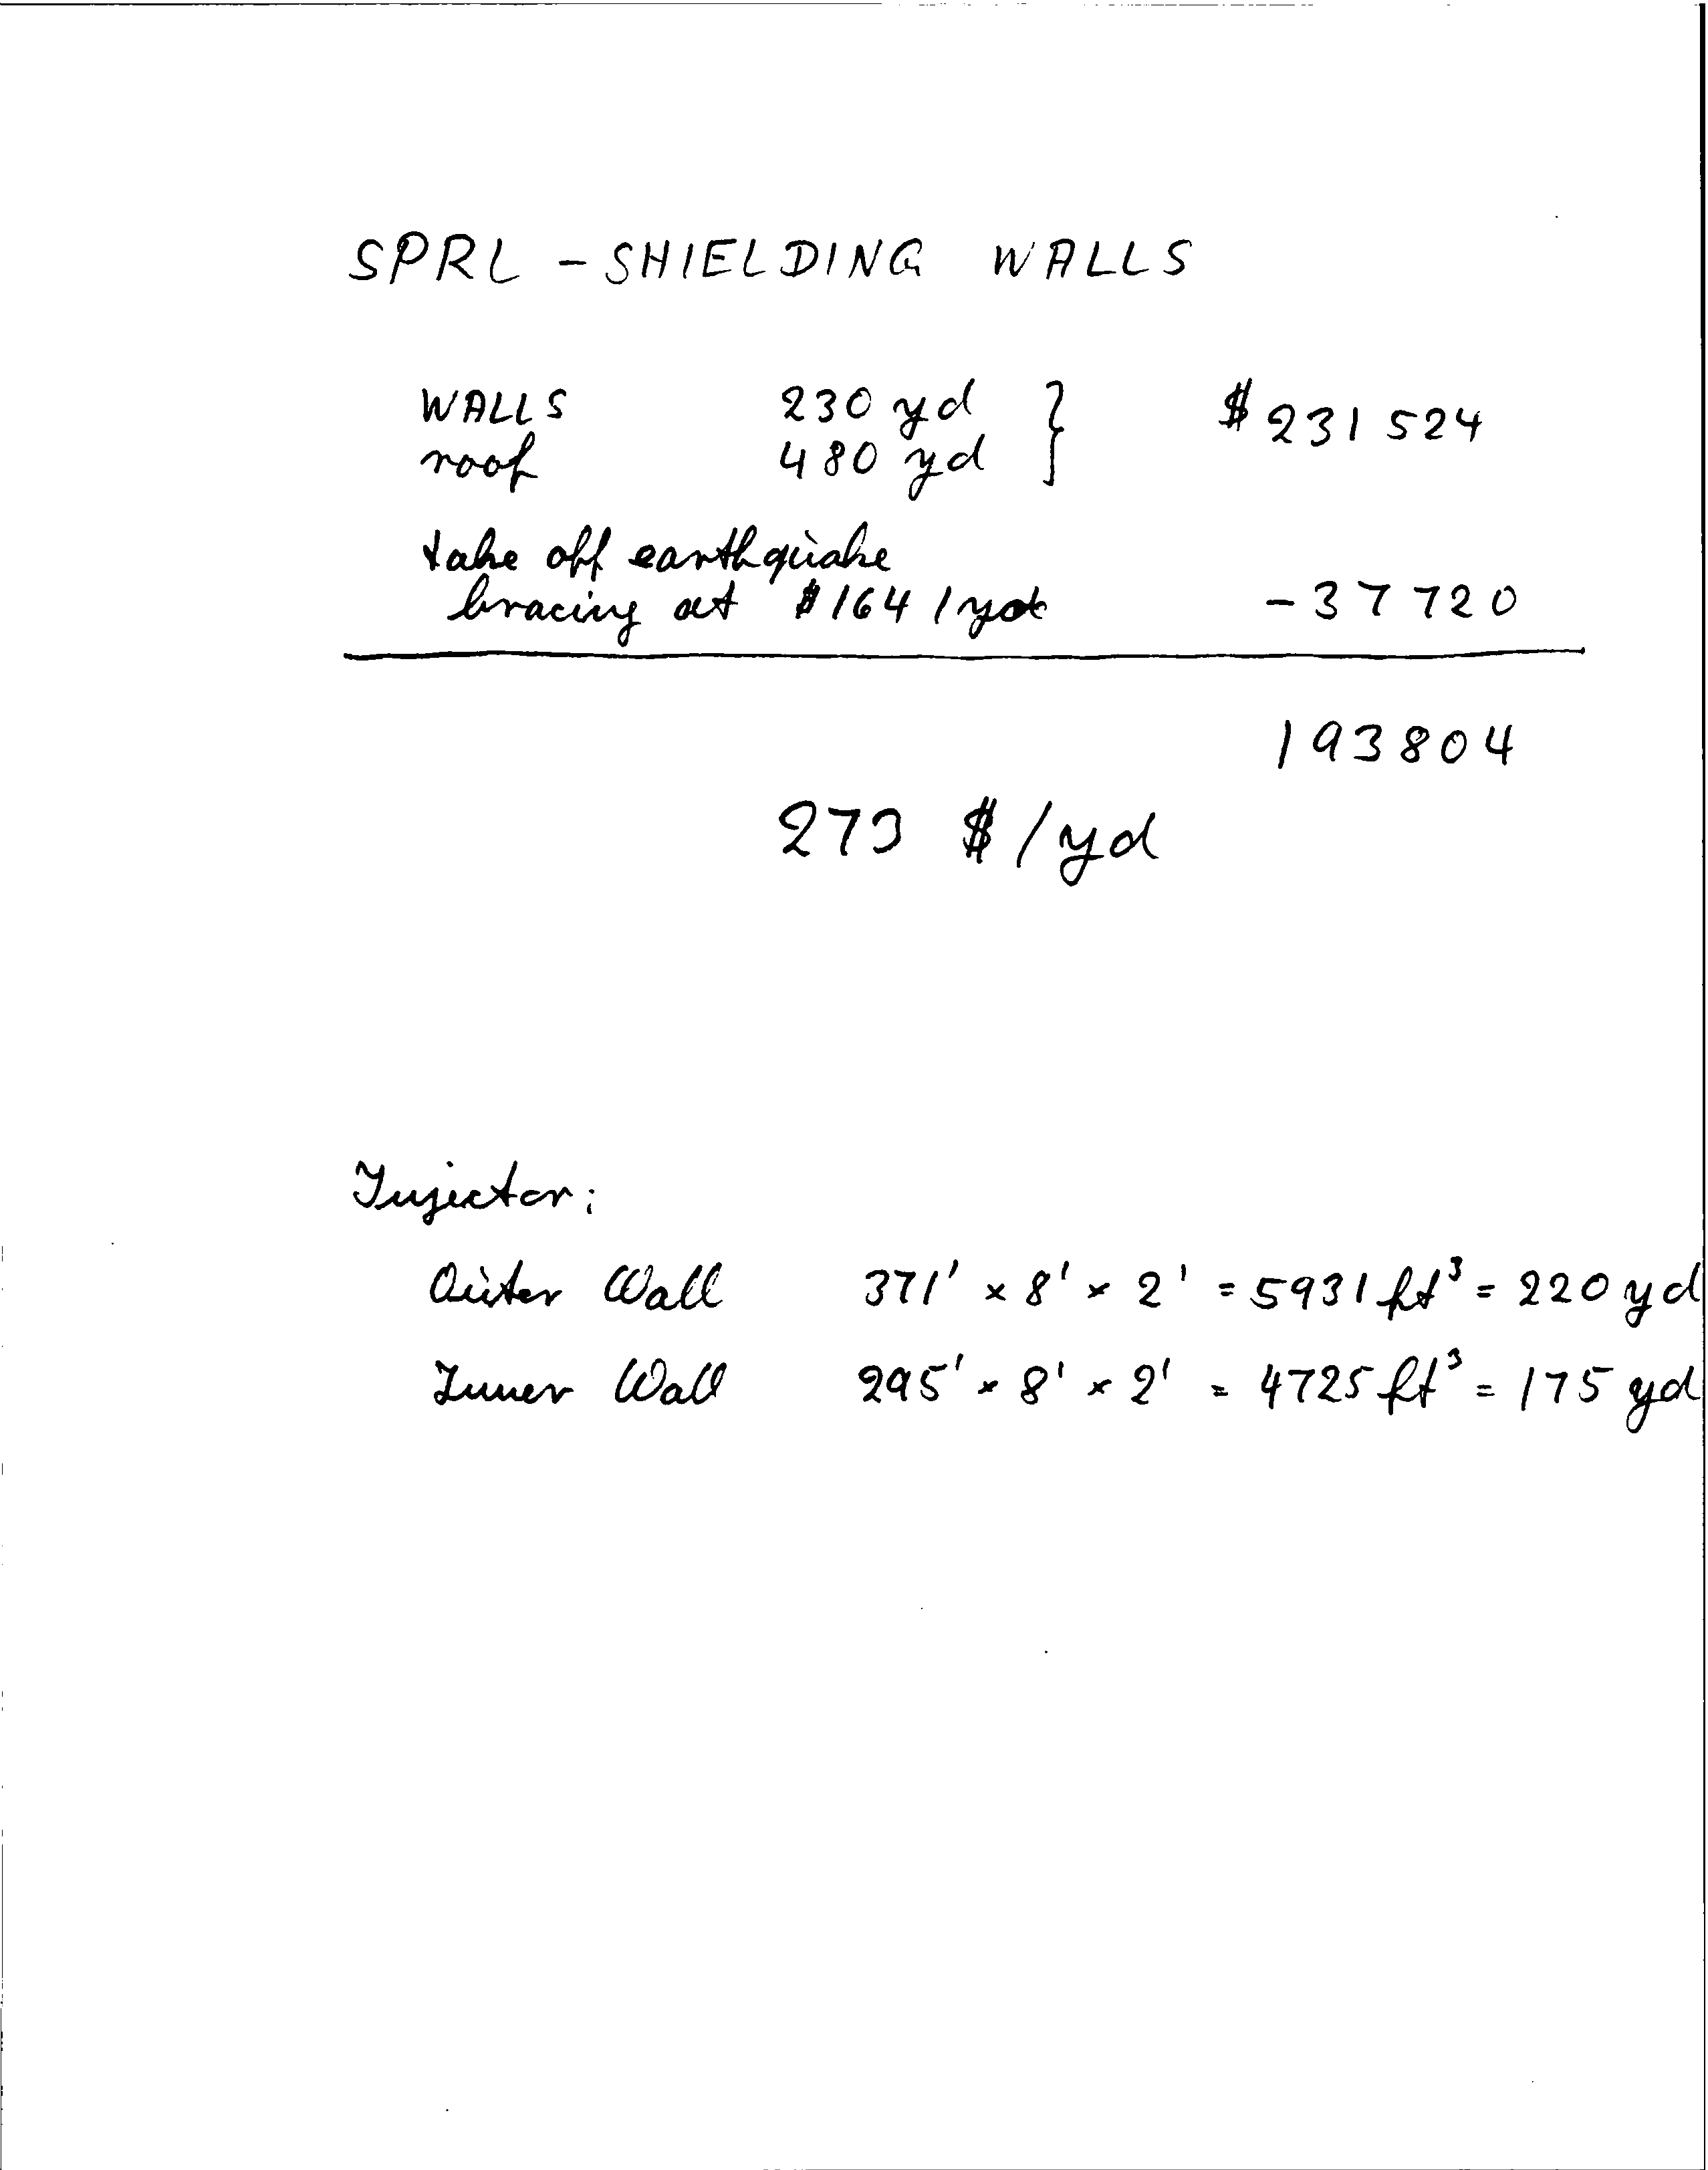 SPRL - SHIELDING WALLS
WALLS 230 yd } $ 231 524
roof 480 yd
take off earthquake
bracing at $164 / yd - 37 720
193804
273 $ / yd
Injector:
Outer Wall 371' x 8' x 2' = 5931 ft³ = 220 yd
Inner Wall 295' x 8' x 2' = 4725 ft³ = 175 yd